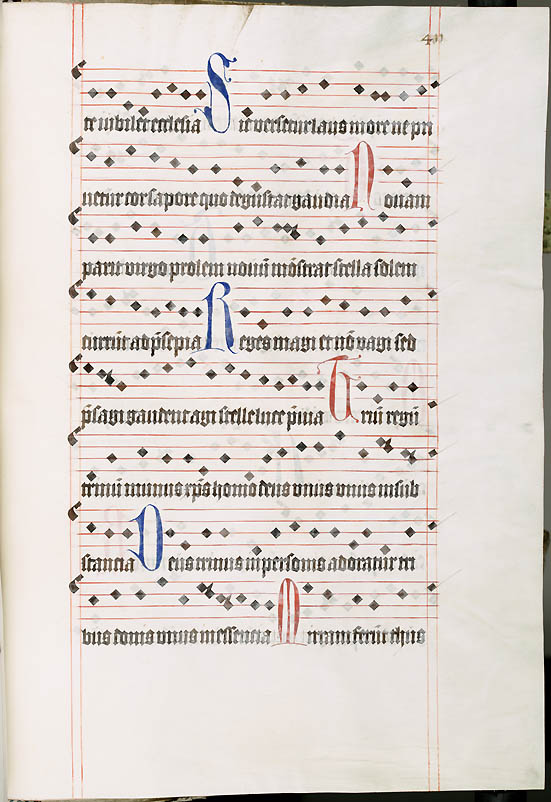 te iubilet ecclesia Sic versetur laus in ore ne pri
uetur cor sapore quo degustat gaudia Nouam
parit virgo prolem nouū mōstrat stella solem
currūt ad p̄sepia Reges magi et nō vagi sed
p̄sagi gaudent agi stelle luce p̄uia Triū regū
trinū munus xp̄s homo deus vnus vnus in sub
stancia Deus trinus in personis adoratur tri
bus donis vnus in essencia Mirram ferūt thus